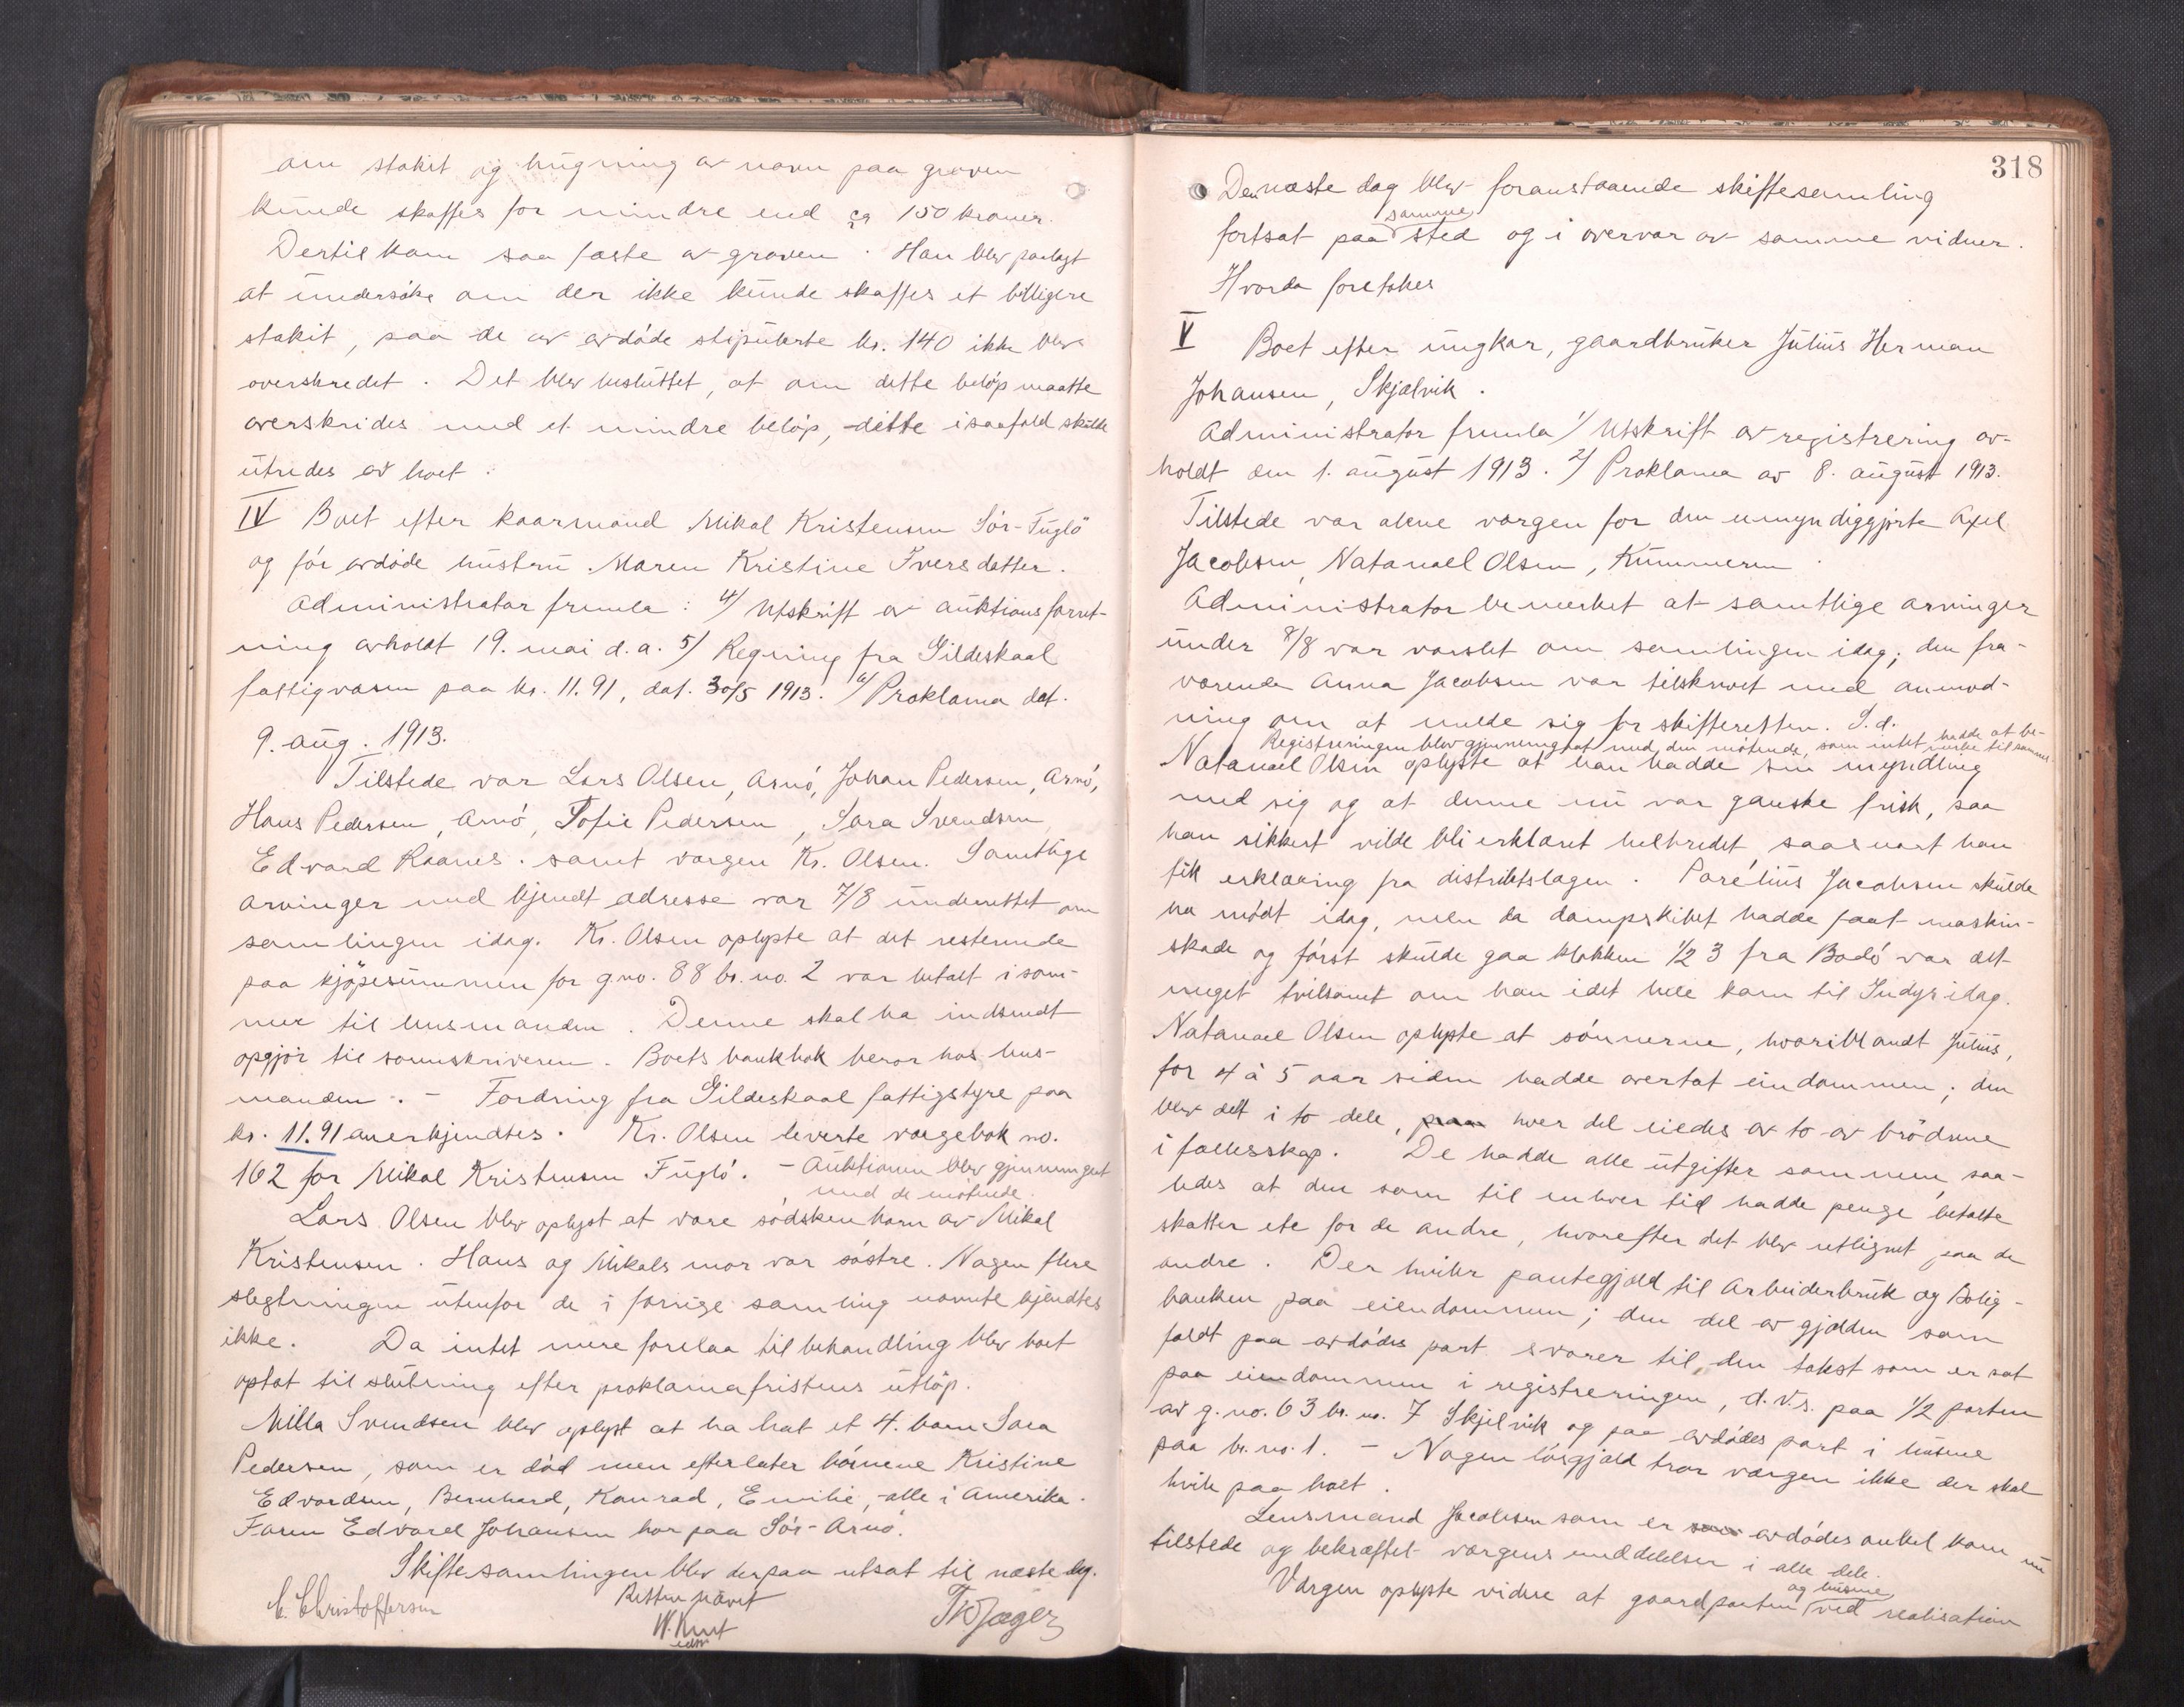 om stakit og hugning av navn paa graven
kunde skaffes for mindre end ca 150 kroner.
Dertil kom saa fæste av graven. Han blev paalagt
at undersøke om der ikke kunde skaffes et billigere
stakit, saa de av avdøde stipulerte kr. 140 ikke blev
overskredet. Det blev besluttet, at om dette beløp maatte
overskrides med et mindre beløp, dette i saafald skulde
utredes av boet.
IV Boet efter kaarmand Mikal Kristensen Sør-Fuglø
og før avdøde hustru Maren Kristine Iversdatter.
Administrator fremla: 4/ Utskrift av auktionsforret-
ning avholdt 19. mai d.a. 5/ Regning fra Gildeskaal
fattigvæsen paa kr. 11.91, dat. 30/5 1913. 6/ Proklama dat.
9. aug. 1913.
Tilstede var Lars Olsen, Arnø, Johan Pedersen, Arnø,
Hans Pedersen, Arnø, Sofie Pedersen, Sara Svendsen
Edvard Kaanes. samt værgen Kr. Olsen. Samtlige
arvinger med kjendt adresse var 7/8 underrettet om
samlingen idag. Kr. Olsen oplyste at det resterende
paa kjøpesummen for g.no. 88 br. no. 2 var betalt i som-
mer til lensmanden. Denne skal ha indsendt
opgjør til sorenskriveren. Boets bankbok beror hos lens-
manden. - Fordring fra Gildeskaal fattigstyre paa
kr. 11.91 anerkjendtes. Kr. Olsen leverte værgebok no.
162 for Mikal Kristensen Fuglø. - Auktionen blev gjennemgaat
med de møtende.
Lars Olsen blev oplyst at være sødskenbarn av Mikal
Kristensen. Hans og Mikals mor var søstre. Nogen flere
slegtninger utenfor de i forrige samling nævnte kjendtes
ikke. Da intet mere forelaa til behandling blev boet
optat til slutning efter proklamafristens utløp.
Milla Svendsen blev oplyst at ha hat et 4. barn Sara
Pedersen, som er død men efterlater børnene Kristine
Edvardsen, Bernhard, Konrad, Emilie, - alle i Amerika.
Faren Edvard Johansen bor paa Sør-Arnø.
Skiftesamlingen blev derpaa utsat til næste dag.
Retten hævet
C. Christoffersen W. Knut Th Jæger
edsv
318
Den næste dag blev foranstaaende skiftesamling
fortsat paa samme sted og i overvær av samme vidner.
Hvorda foretokes
V Boet efter ungkar, gaardbruker Julius Herman
Johansen, Skjælvik.
Administrator fremla 1/ Utskrift av registrering av-
holdt den 1. august 1913. 2/ Proklama av 8. august 1913.
Tilstede var aleneværgen for den umyndiggjorte Axel
Jacobsen, Natanael Olsen, Kummeren.
Administrator bemerket at samtlige arvinger
under 8/8 var varslet om samlingen idag; den fra-
værende Anna Jacobsen var tilskrevet med anmod-
ning om at melde sig for skifteretten. S.d.
Registreringen blev gjennemgaat med den møtende, som intet hadde at be-
merke til samme.
Natanael Olsen oplyste at han hadde sin myndling
med sig og at denne nu var ganske frisk, saa
han sikkert vilde bli erklæret helbredet saasnart han
fik erklæring fra distriktslægen. Parelius Jacobsen skulde
ha mødt idag, men da dampskibet hadde faat maskin-
skade og først skulde gaa klokken 1/2 3 fra Bodø var det
meget tvilsomt om han idet hele kom til Indyr idag.
Natanael Olsen oplyste at sønnerne, hvoriblandt Julius,
for 4 à 5 aar siden hadde overtat eiendommen; den
blev delt i to dele, hver del eiedes av to av brødrene
i fællesskap. De hadde alle utgifter sammen, saa-
ledes at den som til enhver tid hadde penge betalte
skatter etc for de andre, hvorefter det blev utlignet paa de
andre. Der hviler pantegjæld til Arbeiderbruk og Bolig-
banken paa eiendommen; den del av gjælden som
faldt paa avdødes part svarer til den takst som er sat
paa eiendommen i registreringen, d.v.s. paa 1/2 parten
av g. no. 63 br. no. 7 Skjelvik og paa avdødes part i husene
paa br. no. 1. - Nogen løsgjæld tror værgen ikke der skal
hvile paa boet.
Lensmand Jacobsen som er avdødes onkel kom nu
tilstede og bekræftet værgens meddelelser i alle dele.
Værgen oplyste videre at gaardparten og husene ved realisation